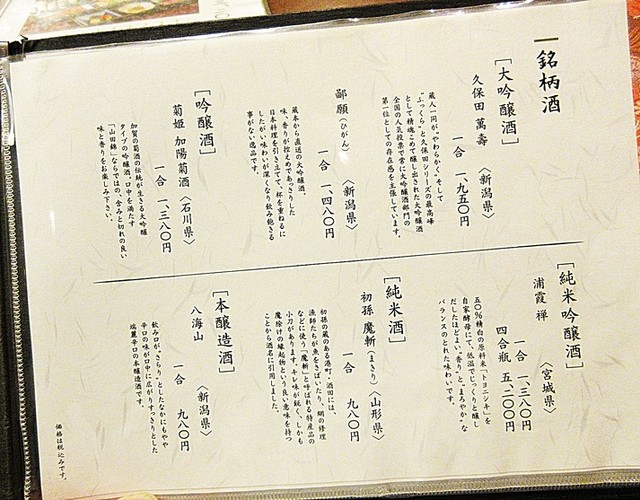 銘柄酒
［大吟醸酒］
久保田 萬壽 〈新潟県〉
一合 一、九五〇円
蔵人一同が、“やわらかく”そして
“ふっくら”と久保田シリーズの最高峰
として精魂こめて醸し出された大吟醸酒。
全国の人気投票で常に大吟醸酒部門の
第一位としての存在感を主張しています。
鄙願（ひがん） 〈新潟県〉
一合 一、四八〇円
蔵本から直送の大吟醸酒。
味、香りが控えめであっさりした
日本料理を引き立てて、杯を重ねるに
したがい味わいが深くなり飲み飽きる
事がない逸品です。
［吟醸酒］
菊姫 加陽菊酒 〈石川県〉
一合 一、三八〇円
加賀の菊酒の伝統が生きる大吟醸
タイプの吟醸酒。口中を満たす
「山田錦」ならではの、含みと切れの良い
味と香りをお楽しみ下さい。
［純米吟醸酒］
浦霞 禅 〈宮城県〉
一合 一、三八〇円
四合瓶 五、二〇〇円
五〇％精白の原料米「トヨニシキ」を
自家酵母にて、低温でじっくりと醸し
だしたほどよい“香り”と“まろやか”な
バランスのとれた味わいです。
［純米酒］
初孫 魔斬（まきり） 〈山形県〉
一合 九八〇円
初孫の蔵のある港町・酒田には、
漁師たちが魚をさばいたり、網の修理
などに使う「魔斬」と呼ばれる特産品の
小刀があります。キレ味が鋭く、しかも
魔除けの縁起物という良い意味を持つ
ことから酒名に引用しました。
［本醸造酒］
八海山 〈新潟県〉
一合 九八〇円
飲み口が、さらり”としたなかにもやや
辛口の味が口中に広がりすっきりとした
端麗辛口の本醸造酒です。
価格は税込みです。